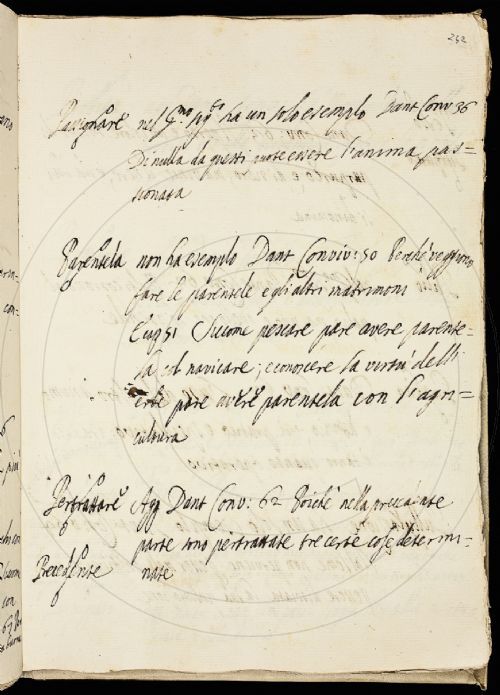 242
nel ha un solo esempio Dant Conv 36
Di nulla da questi puote essere l'anima pas=
sionata
Parentela non ha esempio Dant Conviv: 50 Perche veggiono
fare le parentele e gli altri matrimoni
E 51 Siccome pescare pare avere parente=
la col navicare; e conoscere la virtù dell
erbe pare avere parentela con l'agri=
cultura
Pertrattare Agg Dant Conv: 62 Poiche nella precedente
parte sono pertrattate tre certe cose determi=
Precedente nate